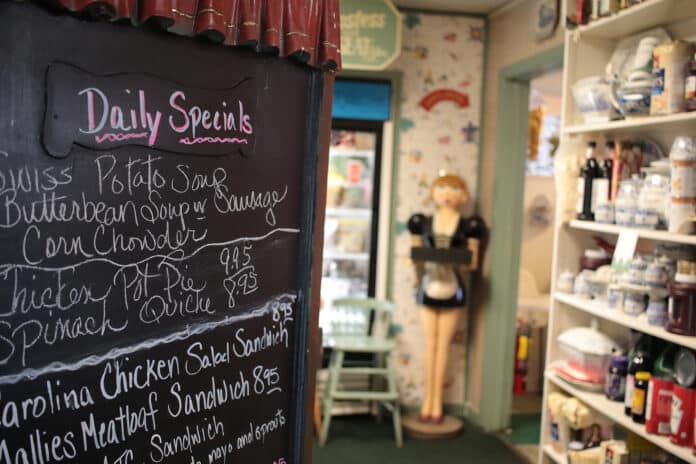 Daily Specials
Swiss Potato Soup
Butterbean Soup w Sausage
Corn Chowder
Chicken Pot Pie 9.95
Spinach Quiche 8.95
Carolina Chicken Salad Sandwich 8.95
Mallies Meatloaf Sandwich 8.95
Sandwich
mayo and sprouts